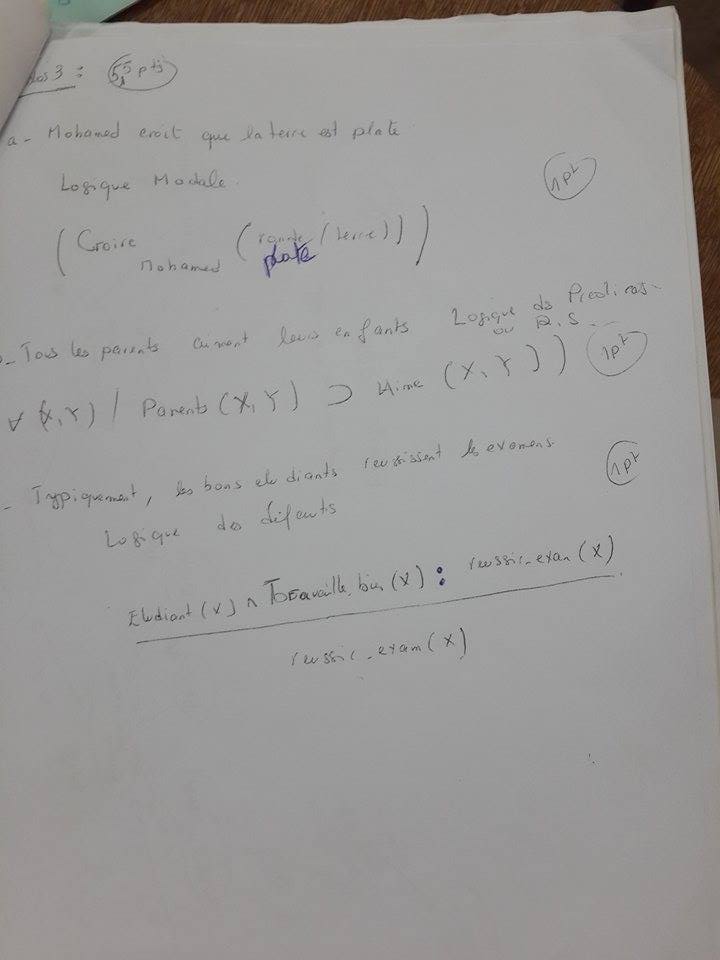 3 : 5,5 pts
a - Mohamed croit que la terre est plate
Logique Modale.
1pt
( Croire Mohamed ( plate (terre) ) )
- Tous les parents aiment leurs enfants Logique des Predicats
ou R.S.
∀ (X,Y) / Parents (X,Y) ⊃ Aime (X,Y) ) ) 1pt
- Typiquement, les bons etudiants reussissent les examens 1pt
Logique des défauts
Etudiant (X) ∧ Travaille_bien (X) : reussir_exam (X)
reussir_exam (X)